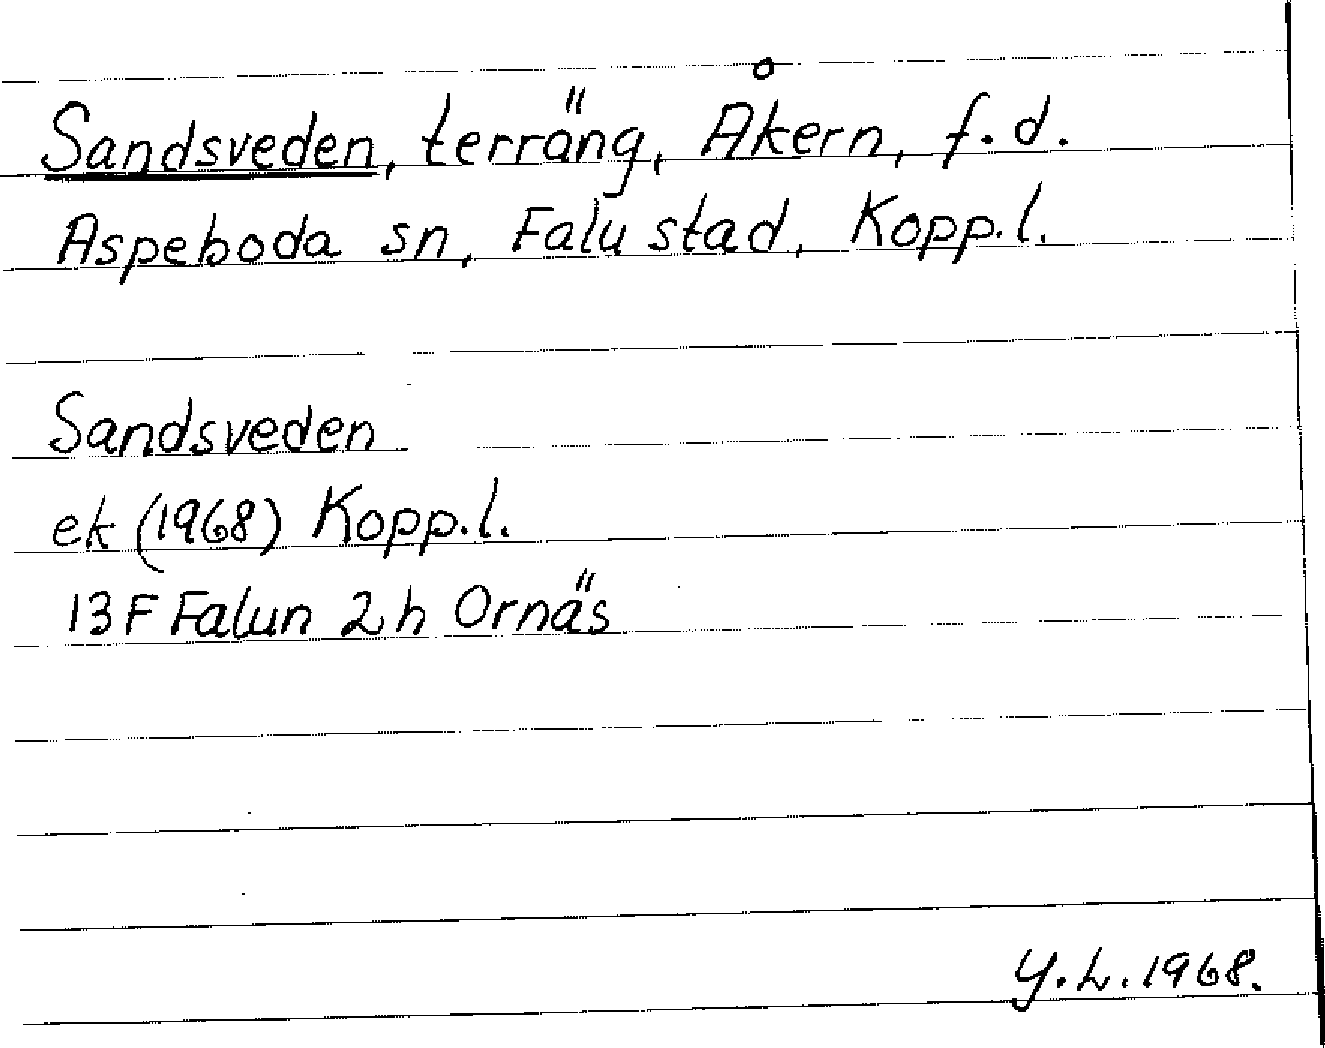 Sandsveden, terräng, Åkern, f.d.
Aspeboda sn, Falu stad, Kopp.l.
Sandsveden
ek (1968) Kopp.l.
13F Falun 2h Ornäs
Y.L.1968.